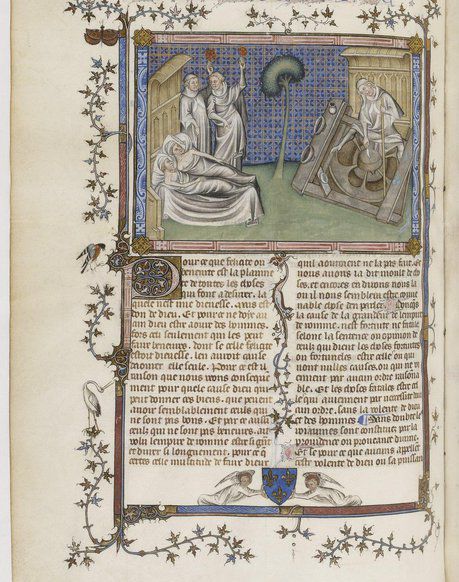 Pour ce que felicite ou
beneurte est la planme
te de toutes les choses
qui font a desirer. la
quele nest mie dieuesse. Ains est
don de dieu. Et pour ce ne doye au
cun dieu estre aoure des hommes.
fors cil seulement qui les peut
faire beneurez. dont se celle felicite
estoit dieuesse. len auroit cause
daourer elle seule. Pour ce est il
raison que nous voions
ment pour quele cause dieu qui
peut donner ces biens. que peuent
avoir semblablement ceuls qui
ne sont pas bons. Et par ce aussi
ceulz qui ne sont pas beneurez. ait
volu lempire de romme estre si grant
et durer si longuement. pour ce que
certes celle multitude de faulx dieux
quil aouroient ne la pas fait. Et
nous avons ia dit moult de cho
ses. et encores en dirons nous la
ou il nous semblera estre conue
nable chose den parler.
la cause de la grandeur de lempire
de romme. nest fortuite ne fatale
selonc la sentence ou opinion de
ceulz qui dient les choses fortunes
ou fortuneles estre celles ou qui
nont nulles causes. ou qui ne vi
ennent par aucun ordre raisona
ble. Et les choses fatales estre cel
les qui aviennent par necessite dau
cun ordre. sans la volente de dieu
et des hommes. Sans doubte les
royaumes sont constitues par la
providence ou pourveance divine.
Et se pour ce que aucuns appellent
ceste volente de dieu ou sa puissance